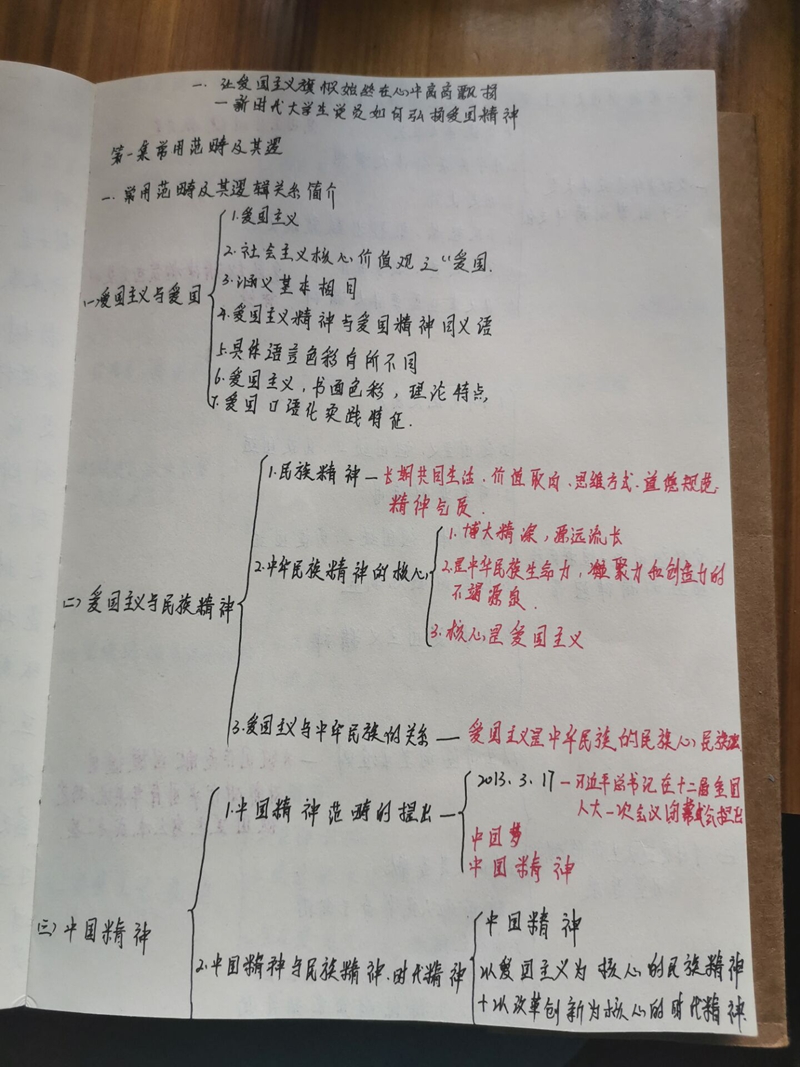 一. 让爱国主义旗帜始终在心中高高飘扬
一新时代大学生党员如何弘扬爱国精神
第一集常用范畴及其逻
一. 常用范畴及其逻辑关系简介
(一)爱国主义与爱国
1.爱国主义
2.社会主义核心价值观之“爱国.
3.涵义基本相同
4.爱国主义精神与爱国精神同义语
5.具体语言色彩有所不同
6.爱国主义,书面色彩,理论特点,
7.爱国口语化实践特征.
(二)爱国主义与民族精神
1.民族精神—长期共同生活.价值取向.思维方式.道德规范.
精神气质.
2.中华民族精神的核心
1.博大精深,源远流长
2.是中华民族生命力,凝聚力和创造力的
不竭源泉.
3.核心是爱国主义
3.爱国主义与中华民族的关系—爱国主义是中华民族的民族心民族
(三)中国精神
1.中国精神范畴的提出—
2013.3.17—习近平总书记在十二届全国
人大一次会议闭幕式会提出
中国梦
中国精神
2.中国精神与民族精神.时代精神
中国精神
以爱国主义为核心的民族精神
+以改革创新为核心的时代精神.